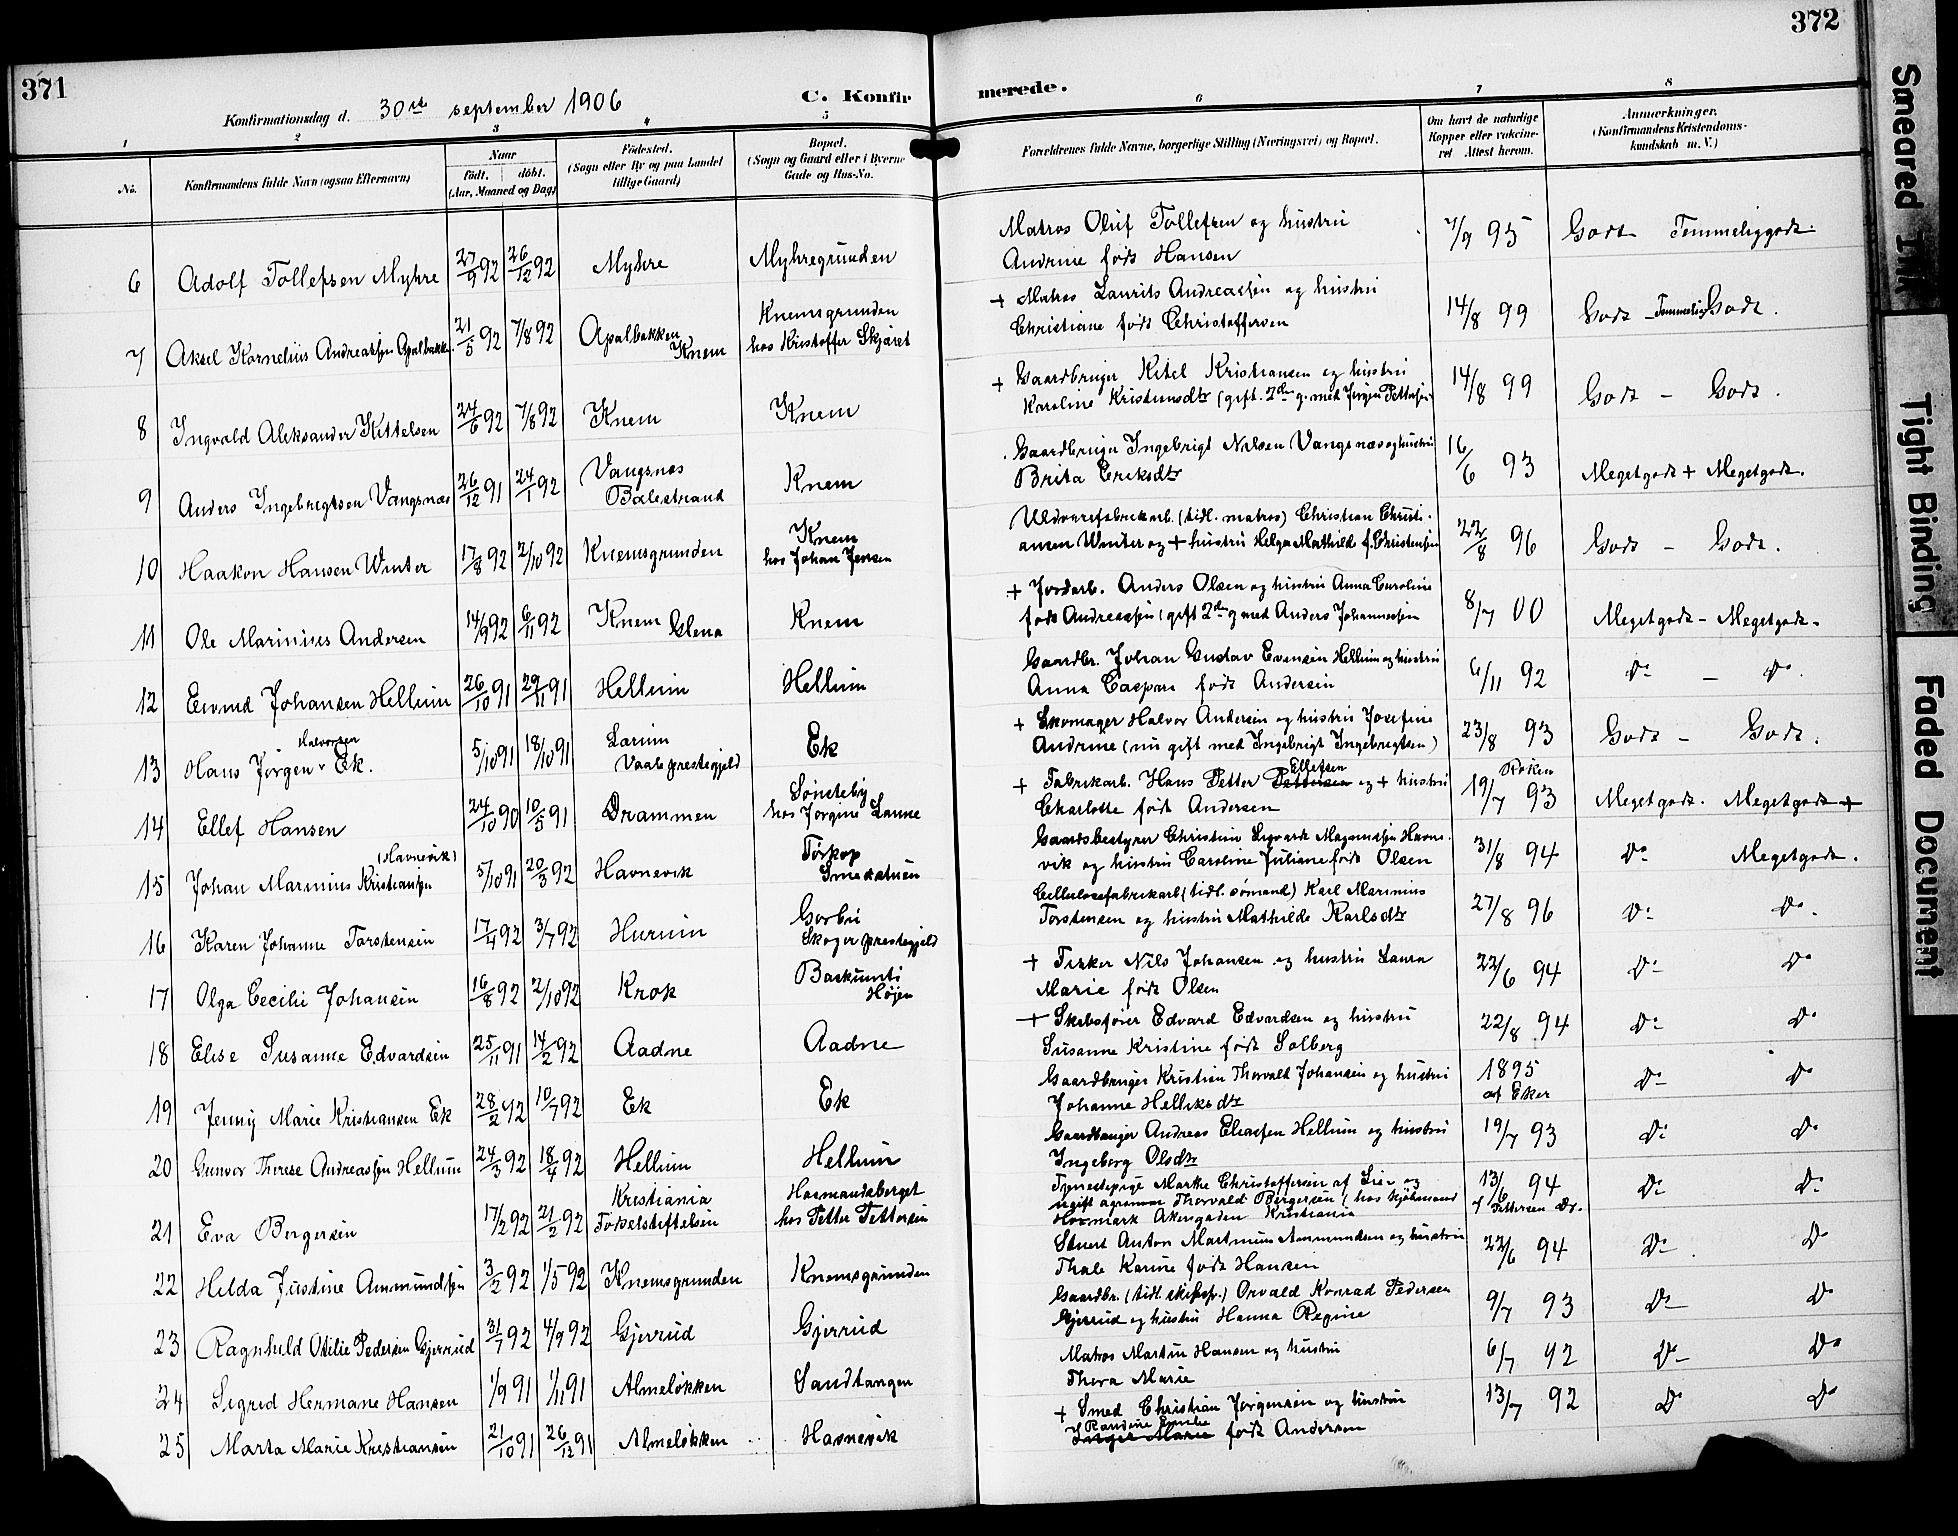 371
372
Konfirmationsdag d. 30te september 1906
C. Konfir
merede.
1
2
3
4
5
6
7
8
No.
Konfirmandens fulde Navn (ogsaa Efternavn)
Naar
født.
døbt.
(Aar, Maaned og Dag)
Fødested.
(Sogn eller By og paa Landet
tillige Gaard)
Bopæl.
(Sogn og Gaard eller i Byerne
Gade og Hus-No.
Forældrenes fulde Navne, borgerlige Stilling (Næringsvei) og Bopæl.
Om havt de naturlige
Kopper eller vakcine-
ret Attest herom.
Anmerkninger.
(Konfirmandens Kristendoms-
kundskab m. V.)
6 Adolf Tollefsen Myhre 27/9 92 26/12 92 Myhre Myhregrunden
Matros Oluf Tollefsen og hustru
Andrine født Hansen
7/9 95 Godt Temmeliggodt.
7 Aksel Kornelius Andreassen Apalbakken 21/5 92 7/8 92 Apalbakken Knem
Knemsgrunden
hos Kristoffer Skjæret
+ Matros Laurits Andreassen og hustru
Christiane født Christoffersen
14/8 99 Godt - Temmelig Godt.
8 Ingvald Aleksander Kittelsen 24/6 92 7/8 92 Knem Knem
+ Gaardbruger Kitel Kristiansen og hustru
Karoline Kristensdtr (gift. 2den g. med Jørgen Pettersen
14/8 99 Godt - Godt.
9 Anders Ingebregtsen Vangsnæs 26/12 91 24/1 92 Vangsnes
Balestrand
Knem
Gaardbruger Ingebrigt Nilsen Vangsnæs og hustru
Brita Eriksdtr
16/6 93 Megetgodt + Megetgodt.
10 Haakon Hansen Winter 17/8 92 2/10 92 Knemsgrunden Knem
hos Johan Jensen
Uldvarefabrikarb. (tidl. matros) Christian Christi-
ansen Winter og + hustru Helga Mathilde f. Christensen
22/8 96 Godt - Godt.
11 Ole Marinius Andersen 14/9 92 6/11 92 Knem Glena Knem
+ Jordarb. Anders Olsen og hustru Anna Caroline
født Andreassen (gift 2den g med Anders Johannessen
8/7 00 Megetgodt - Megetgodt -
12 Eivind Johansen Hellum 26/10 91 29/11 91 Hellum Hellum
Gaardbr. Johan Gustav Evensen Hellum og hustru
Anna Caspara født Andersen
6/11 92 Do - Do.
13 Hans Jørgen Halvorsen Ek. 5/10 91 18/10 91 Larum
Vaale prestegjeld
Ek
+ Skomager Halvor Andersen og hustru Josefine
Andrine (nu gift med Ingebrigt Ingebregtsen)
23/8 93 Godt - Godt.
14 Ellef Hansen 24/10 90 10/5 91 Drammen Sønsteby
hos Jørgine Lanne
+ Fabrikarb. Hans Petter Pettersen Ellefsen og + hustru
Charlotte født Andersen
19/7 93 Røken Megetgodt. Megetgodt +
15 Johan Marinius Kristiansen (Havnevik) 5/10 91 20/3 92 Havnevik Tørkop
Smedstuen
Gaardsbestyrer Christian Sigvardt Magnussen Havne-
vik og hustru Caroline Juliane født Olsen
31/8 94 Do Megetgodt.
16 Karen Johanne Torstensen 17/4 92 3/7 92 Hurum Gorbu
Skoger prestegjeld
Cellulosefabrikarb (tidl. sømand) Karl Marinius
Torstensen og hustru Mathilde Karlsdtr
27/8 96 Do Do.
17 Olga Cecilie Johansen 16/8 92 2/10 92 Krok Baskumti
Højen
+ Fisker Nils Johansen og hustru Laura
Marie født Olsen
22/6 94 Do Do
18 Elise Susanne Edvardsen 25/11 91 14/2 92 Aadne Aadne
+ Skibsfører Edvard Edvardsen og hustru
Susanne Kristine født Solberg
22/8 94 Do Do
19 Jenny Marie Kristiansen Ek 28/2 92 10/7 92 Ek Ek
Gaardbruger Kristian Thorvald Johansen og hustru
Johanne Helliksdtr
1895
af Eker
Do Do
20 Gunvor Therese Andreassen Hellum 24/3 92 18/4 92 Hellum Hellum
Gaardbruger Andreas Eliassen Hellum og hustru
Ingeborg Olsdtr
19/7 93 Do Do
21 Eva Bergersen 17/2 92 21/2 92 Kristiania
Fødselstiftelsen
Hasmandsberget
hos Petter Pettersen
Tjenestepige Marthe Christoffersen af Lier og
ugift agronom Thorvald Bergersen (hos kjøbmand
Hovmark Akersgaden Kristiania
13/6 94
f Pettersen Dr.
Do Do
22 Helda Justine Ammundsen 3/2 92 1/5 92 Knemsgrunden Knemsgrunden
Stuert Anton Martinius Ammundsen og hustru
Thale Karine født Hansen
22/6 94 Do Do
23 Ragnhild Otilie Pedersen Gjerrud 31/7 92 4/9 92 Gjerrud Gjerrud
Gaardbr. (tidl. skibsp.) Orvald Konrad Pedersen
Gjerrud og hustru Hanna Regine
9/7 93 Do Do
24 Sigrid Hermane Hansen 1/9 91 1/11 91 Almeløkken Sandtangen
Matros Martin Hansen og hustru
Thora Marie
6/7 92 Do Do
25 Marta Marie Kristiansen 21/10 91 26/12 91 Almeløkken Havnevik
+ Smed Christian Jørgensen og hustru
Randine Emilie
Inger Marie født Andersen
13/7 92 Do Do
Smeared Ink
Tight Binding
Faded Document